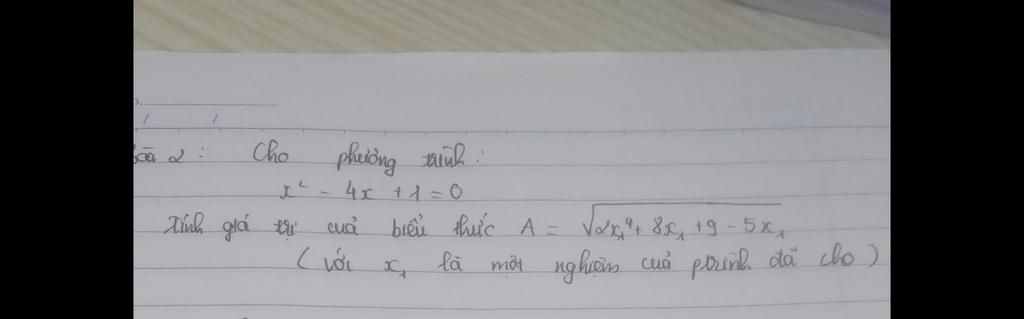 Bài 2: Cho phương trình:
x² - 4x + 1 = 0
Tính giá trị cuả biểu thức A = √(2x₁⁴ + 8x₁ + 9 - 5x₁)
(với x₁ là một nghiệm cuả ptrình đã cho)